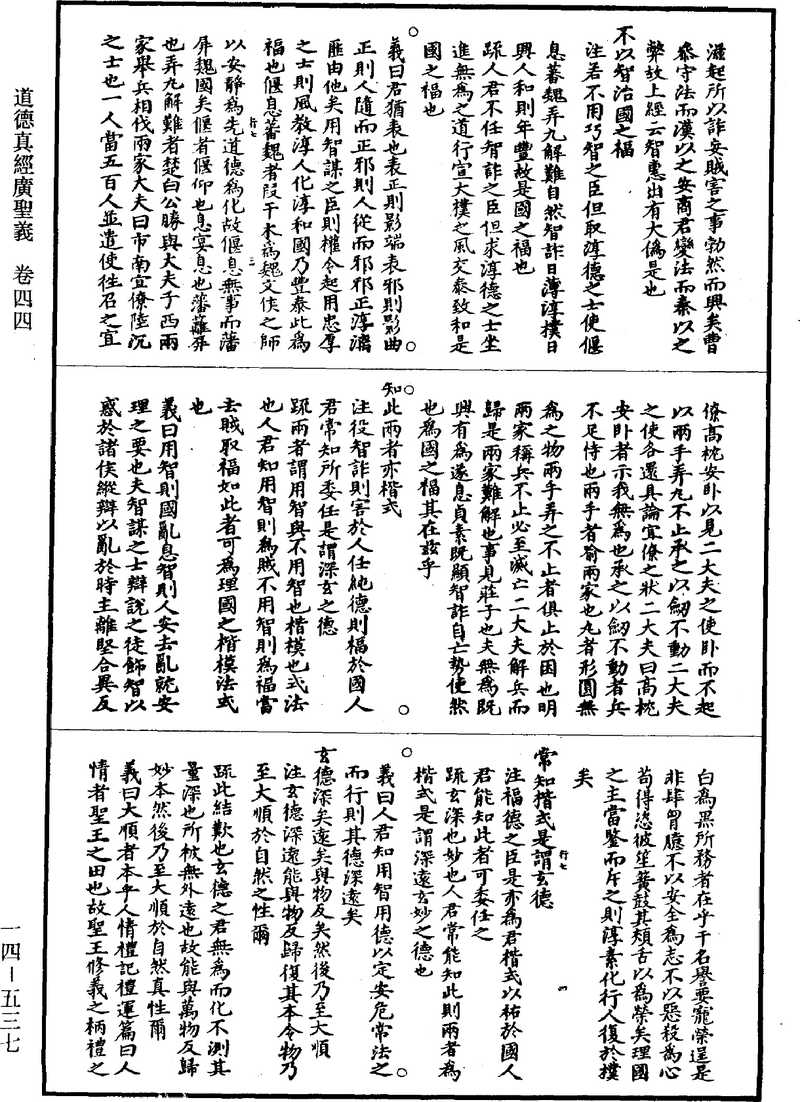 道德真經廣聖義　卷四四
滋起所以詐妄賊害之事勃然而興矣曹
叅守法而漢以之安商君變法而秦以之
弊故上經云智惠出有大僞是也
不以智治國國之福
注若不用巧智之臣但取淳德之士使偃
息蕃魏弄丸解難自然智詐日薄淳樸日
興人和則年豐故是國之福也
疏人君不任智詐之臣但求淳德之士坐
進無爲之道行宣大樸之風交泰致和是
國之福也
義曰君猶表也表正則影端表邪則影曲
正則人隨而正邪則人從而邪邪正淳漓
匪由他矣用智謀之臣則權令起用忠厚
之士則風教淳人化淳和國乃豐泰此爲
福也偃息蕃魏者段干木爲魏文侯之師
以安靜爲先道德爲化故偃息無事而藩
屏魏國矣偃者偃仰也息宴息也藩籬屏
也弄丸解難者楚白公勝與大夫子西兩
家舉兵相伐兩家大夫曰市南宜僚陸沉
之士也一人當五百人並遣使徃召之宜
僚高枕安卧以見二大夫之使卧而不起
以兩手弄丸不止承之以劒不動二大夫
之使各還具論宜僚之狀二大夫曰高枕
安卧者示我無爲也承之以劒不動者兵
不足恃也兩手者喻兩家也丸者形圓無
爲之物兩手弄之不止者俱止於困也明
兩家稱兵不止必至滅亡二大夫解兵而
歸是兩家難解也事見莊子也夫無爲既
興有爲遂息貞素既顯智詐自亡勢使然
也爲國之福其在兹乎
知此兩者亦楷式
注役智詐則害於人任純德則福於國人
君常知所委任是謂深玄之德
疏兩者謂用智與不用智也楷模也式法
也人君知用智則爲賊不用智則爲福當
去賊取福如此者可爲理國之楷模法式
也
義曰用智則國亂息智則人安去亂就安
理之要也夫智謀之士辯說之徒飾智以
惑於諸侯縱辯以亂於時主離堅合異反
白爲黑所務者在乎干名譽要寵榮逞是
非肆胷臆不以安全爲志不以惡殺爲心
苟得恣彼笙簧鼓其頰舌以爲榮矣理國
之主當鑒而斥之則淳素化行人復於樸
矣
常知楷式是謂玄德
注福德之臣是亦爲君楷式以祐於國人
君能知此者可委任之
疏玄深也妙也人君常能知此則兩者爲
楷式是謂深遠玄妙之德也
義曰人君知用智用德以定安危常法之
而行則其德深遠矣
玄德深矣遠矣與物反矣然後乃至大順
注玄德深遠能與物反歸復其本令物乃
至大順於自然之性爾
疏此結歎也玄德之君無爲而化不測其
量深也所被無外遠也故能與萬物反歸
妙本然後乃至大順於自然真性爾
義曰大順者本乎人情禮記禮運篇曰人
情者聖王之田也故聖王修義之柄禮之
一四—五三七